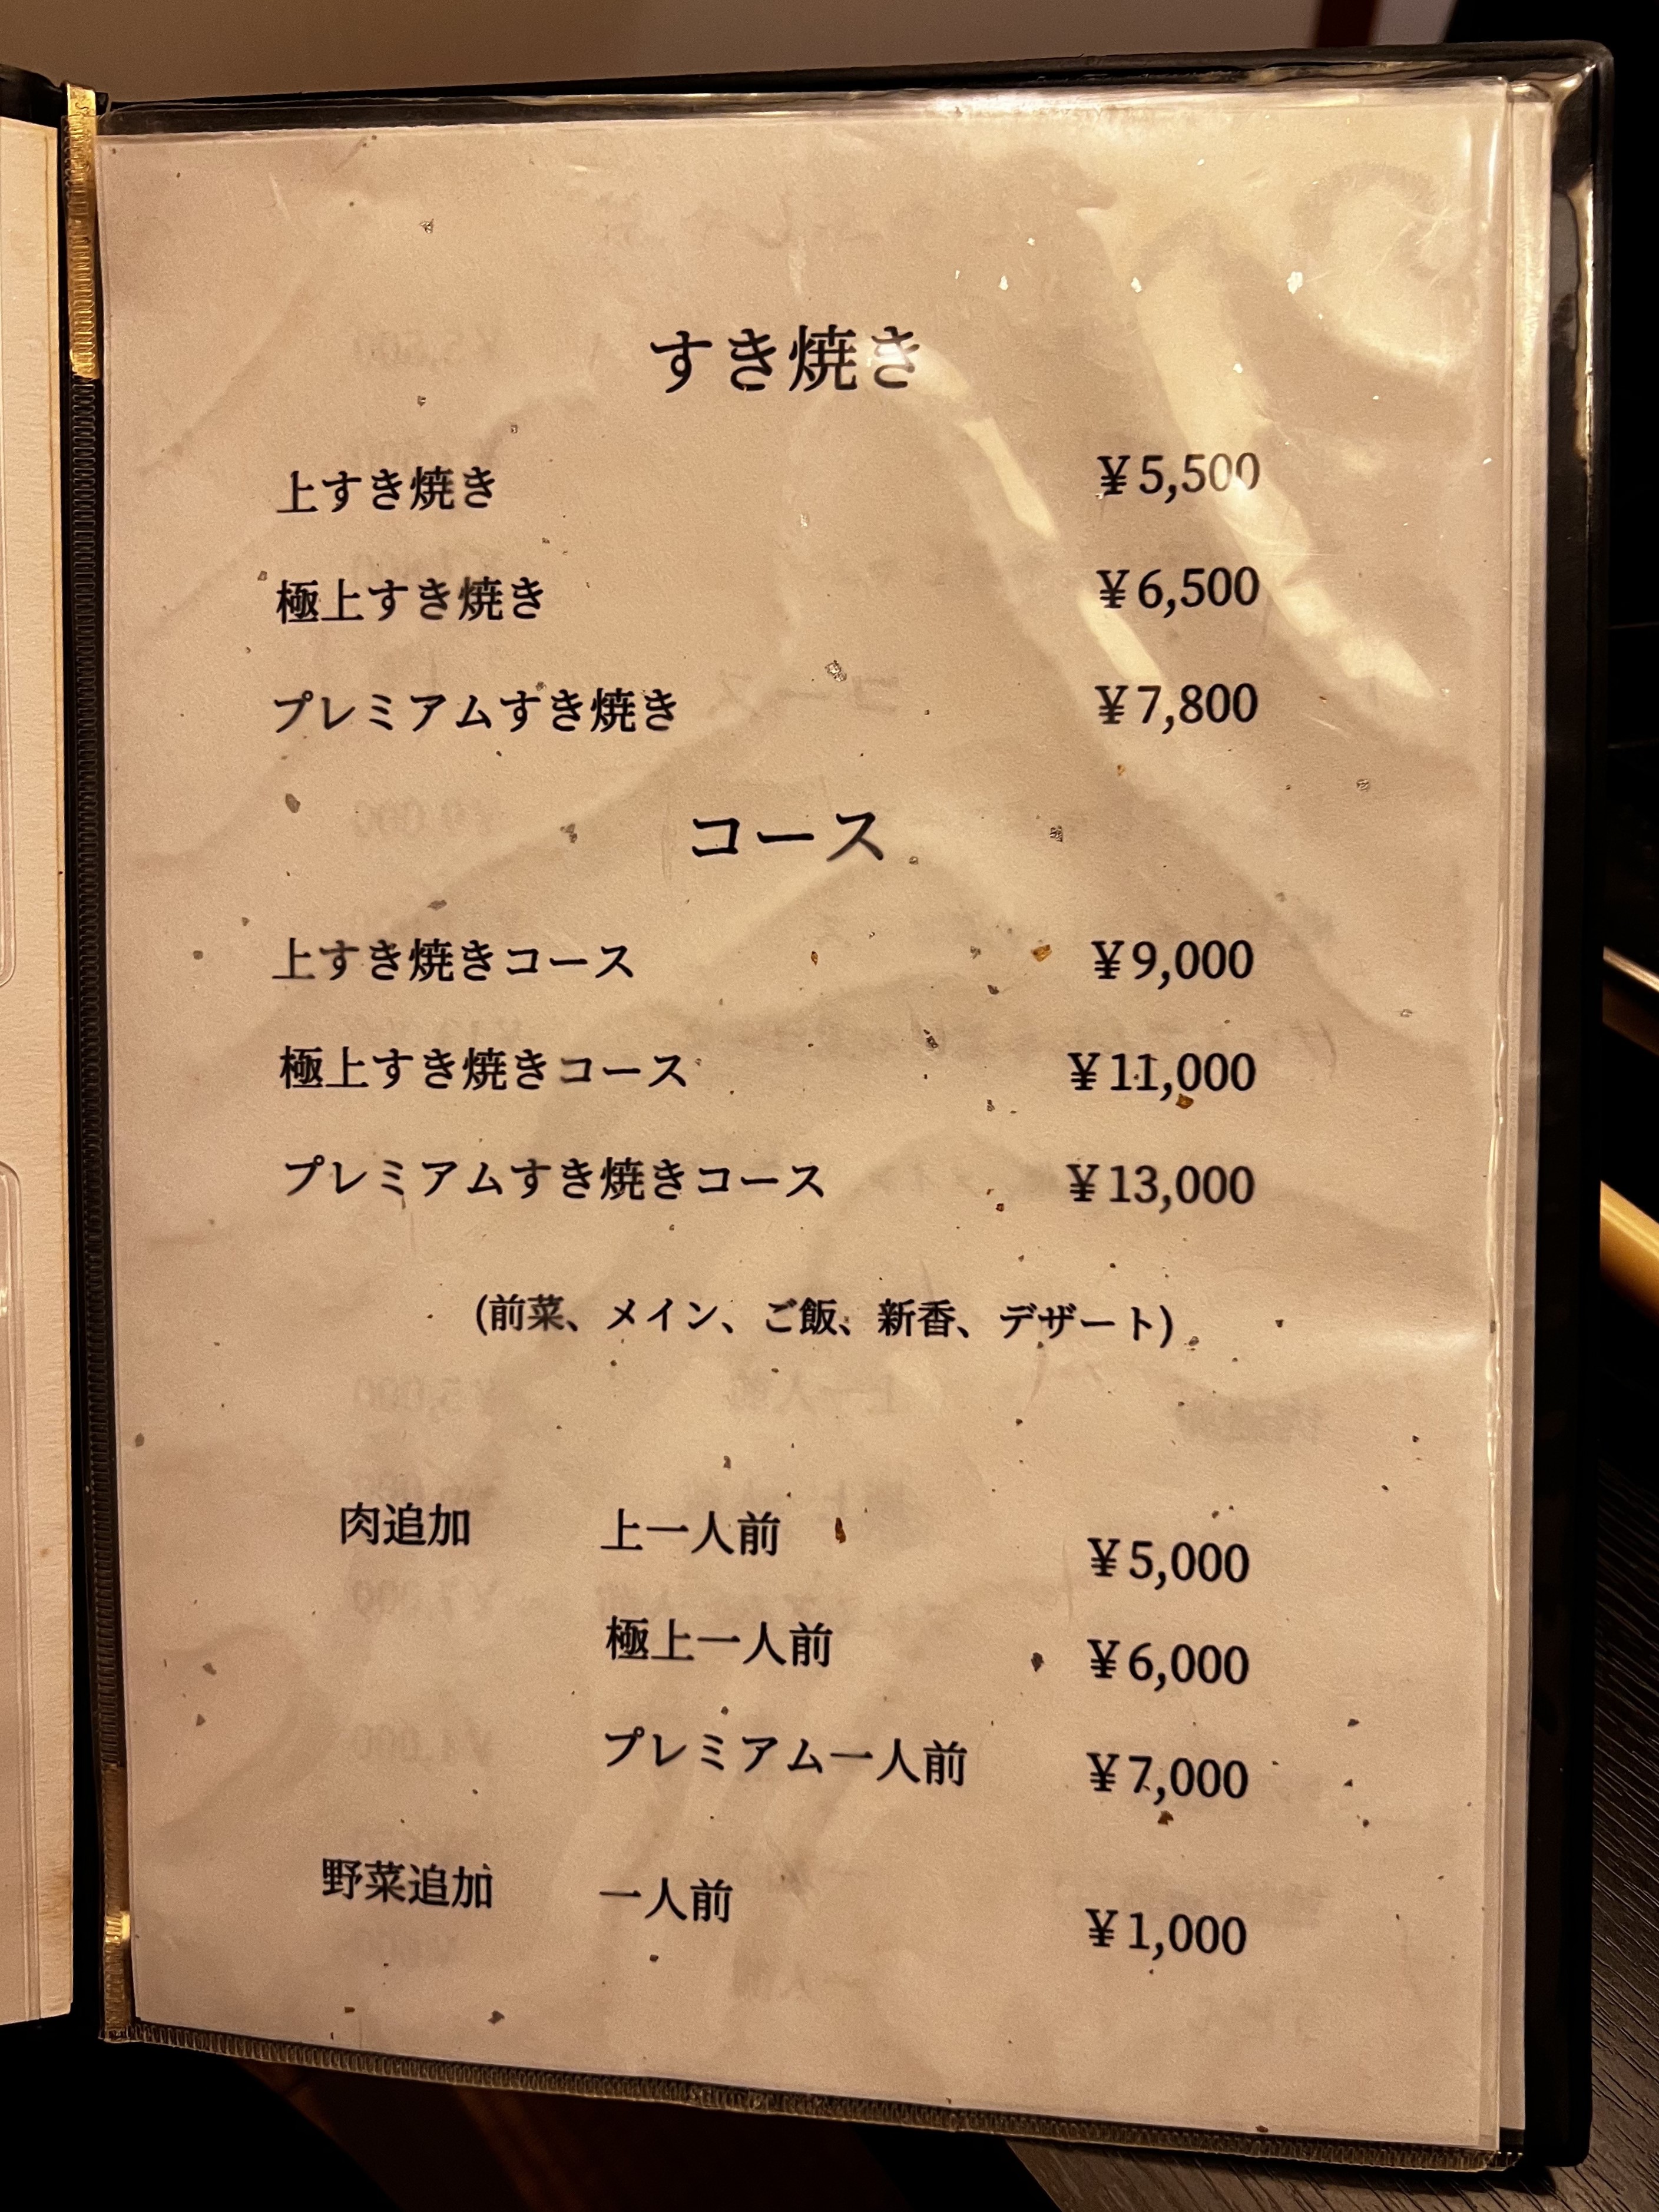 すき焼き
上すき焼き ¥5,500
極上すき焼き ¥6,500
プレミアムすき焼き ¥7,800
コース
上すき焼きコース ¥9,000
極上すき焼きコース ¥11,000
プレミアムすき焼きコース ¥13,000
(前菜、メイン、ご飯、新香、デザート)
肉追加 上一人前 ¥5,000
極上一人前 ¥6,000
プレミアム一人前 ¥7,000
野菜追加 一人前 ¥1,000